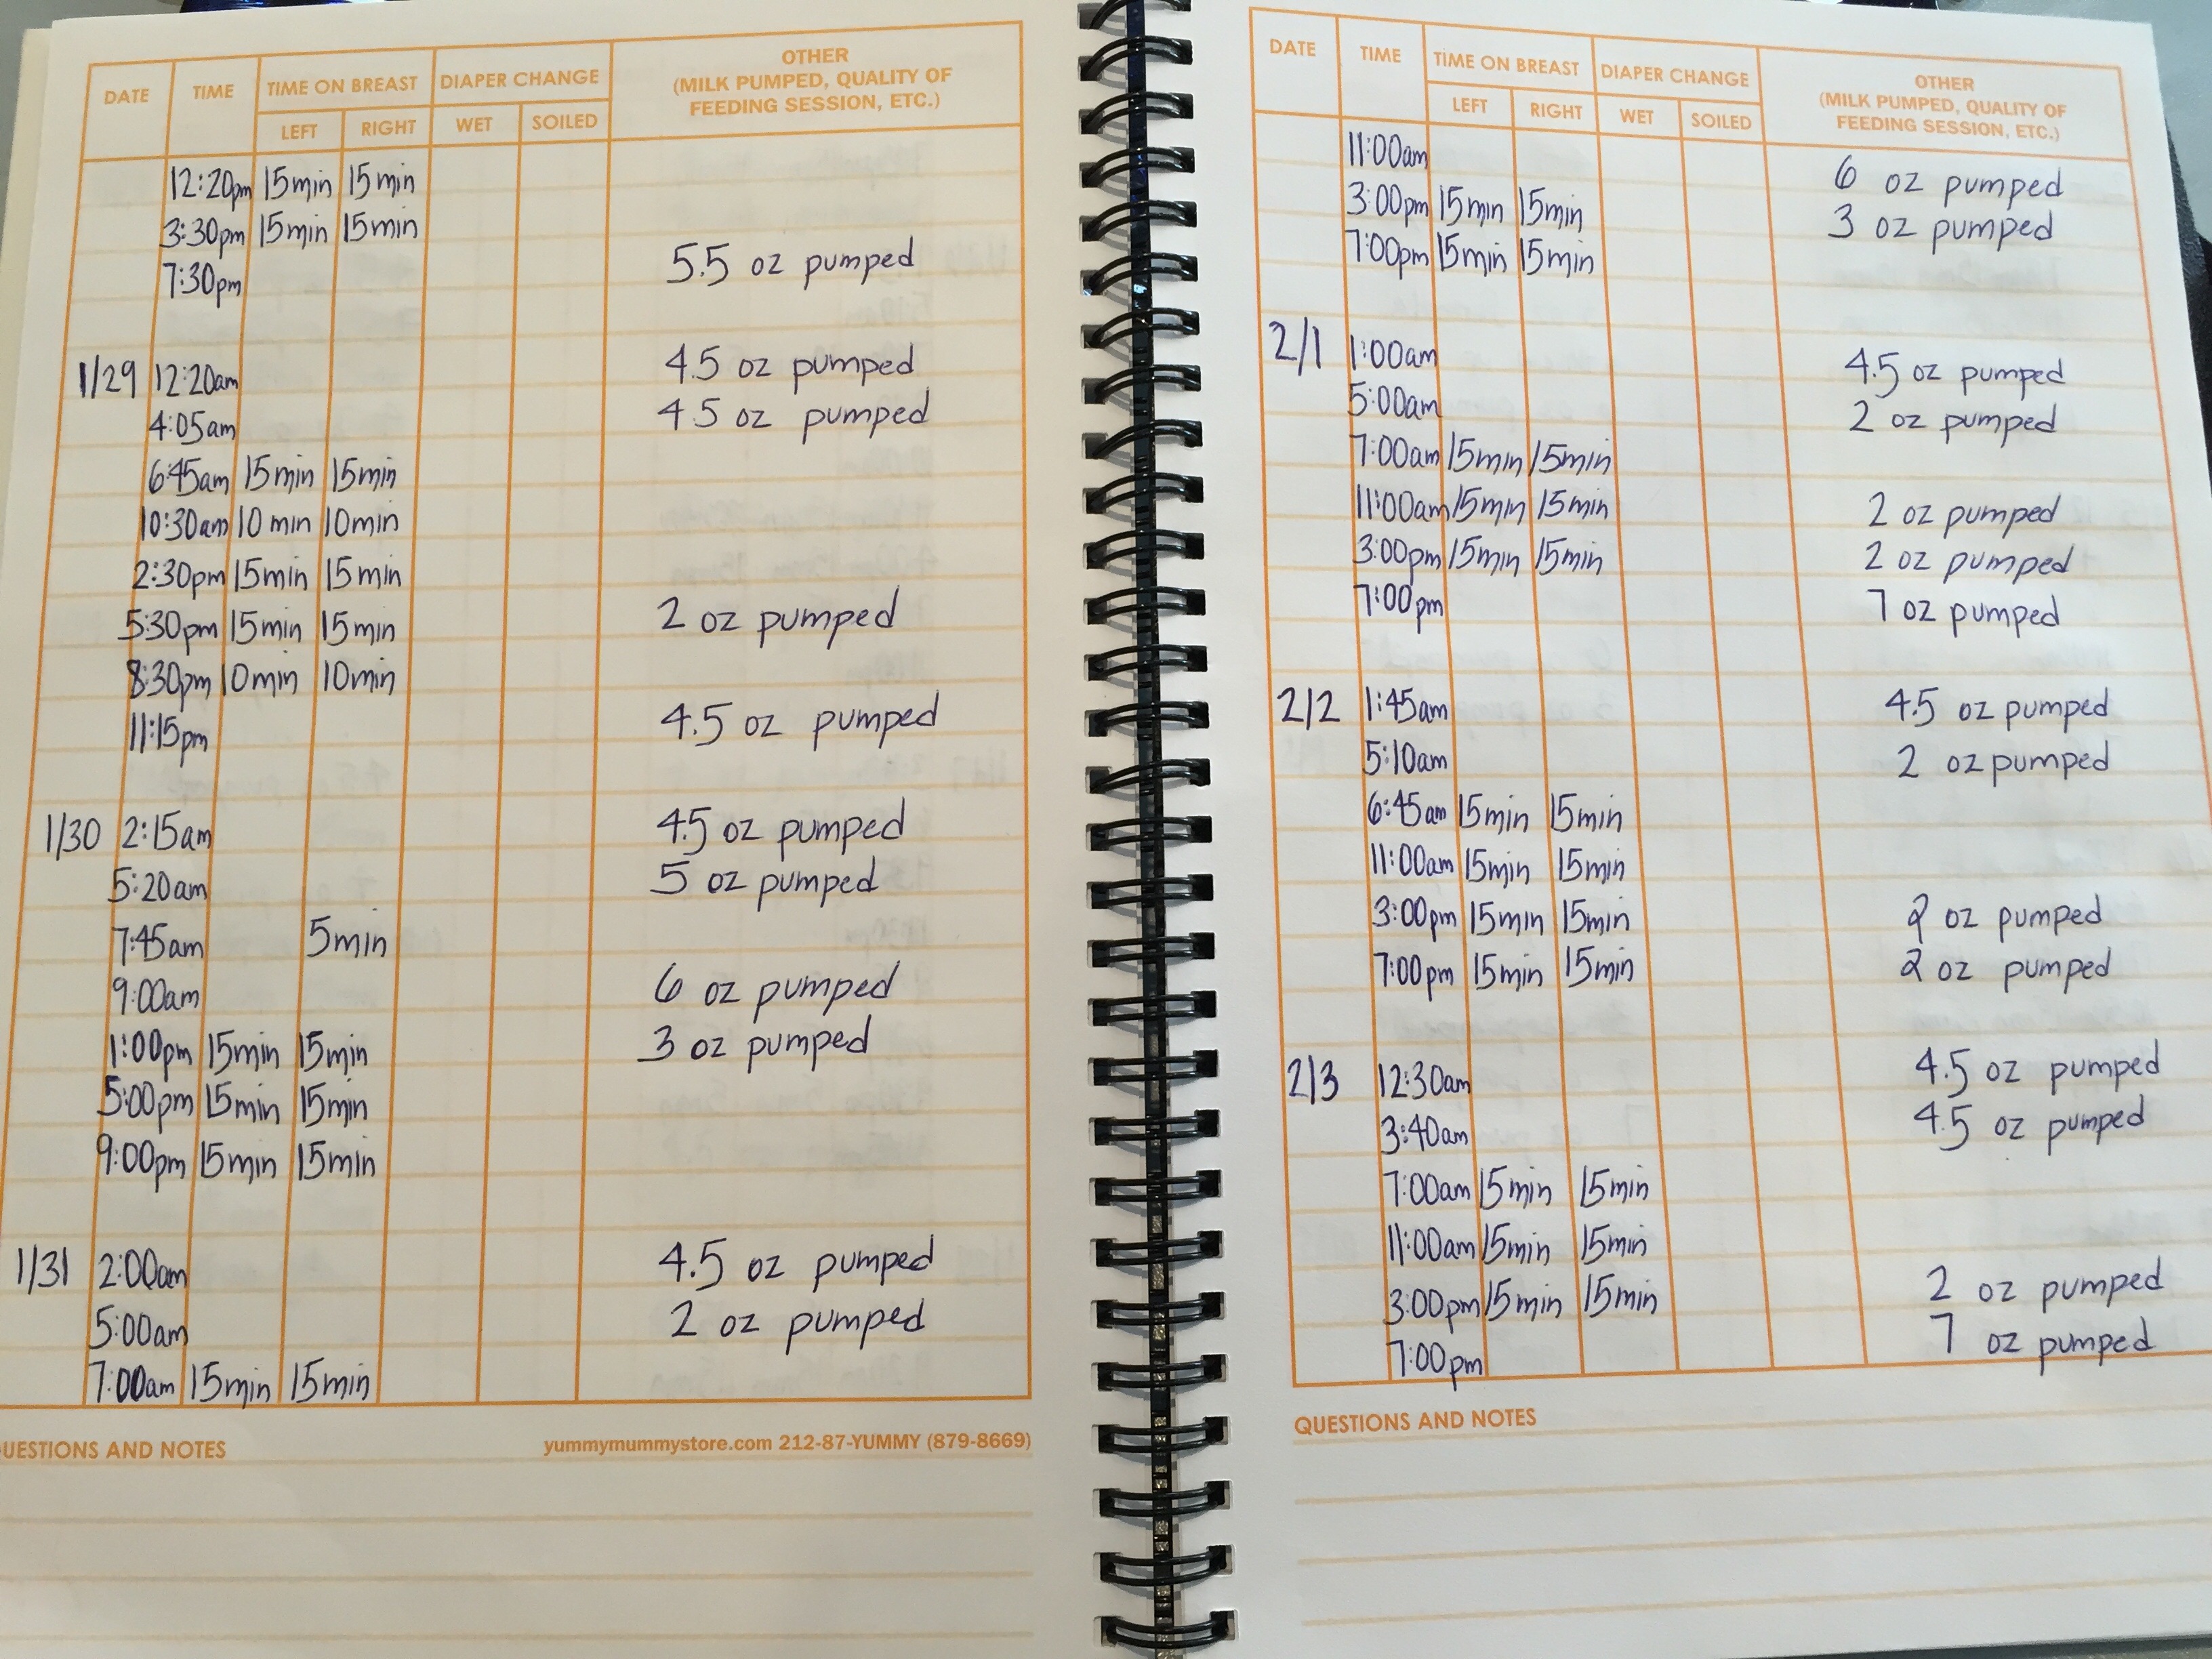 DATE TIME TIME ON BREAST DIAPER CHANGE OTHER
(MILK PUMPED, QUALITY OF
FEEDING SESSION, ETC.)
LEFT RIGHT WET SOILED
12:20pm 15min 15min
3:30pm 15min 15min
7:30pm 5.5 oz pumped
1/29 12:20am 4.5 oz pumped
4:05am 4.5 oz pumped
6:45am 15min 15min
10:30am 10min 10min
2:30pm 15min 15min
5:30pm 15min 15min 2 oz pumped
8:30pm 10min 10min
11:15pm 4.5 oz pumped
1/30 2:15am 4.5 oz pumped
5:20am 5 oz pumped
7:45am 5min
9:00am 6 oz pumped
1:00pm 15min 15min 3 oz pumped
5:00pm 15min 15min
9:00pm 15min 15min
1/31 2:00am 4.5 oz pumped
5:00am 2 oz pumped
7:00am 15min 15min
UESTIONS AND NOTES
yummymummystore.com 212-87-YUMMY (879-8669)
DATE TIME TIME ON BREAST DIAPER CHANGE OTHER
(MILK PUMPED, QUALITY OF
FEEDING SESSION, ETC.)
LEFT RIGHT WET SOILED
11:00am 6 oz pumped
3:00pm 15min 15min 3 oz pumped
7:00pm 15min 15min
2/1 1:00am 4.5 oz pumped
5:00am 2 oz pumped
7:00am 15min 15min
11:00am 15min 15min 2 oz pumped
3:00pm 15min 15min 2 oz pumped
7:00pm 7 oz pumped
2/2 1:45am 4.5 oz pumped
5:10am 2 oz pumped
6:45am 15min 15min
11:00am 15min 15min
3:00pm 15min 15min 2 oz pumped
7:00pm 15min 15min 2 oz pumped
2/3 12:30am 4.5 oz pumped
3:40am 4.5 oz pumped
7:00am 15min 15min
11:00am 15min 15min
3:00pm 15min 15min 2 oz pumped
7:00pm 7 oz pumped
QUESTIONS AND NOTES